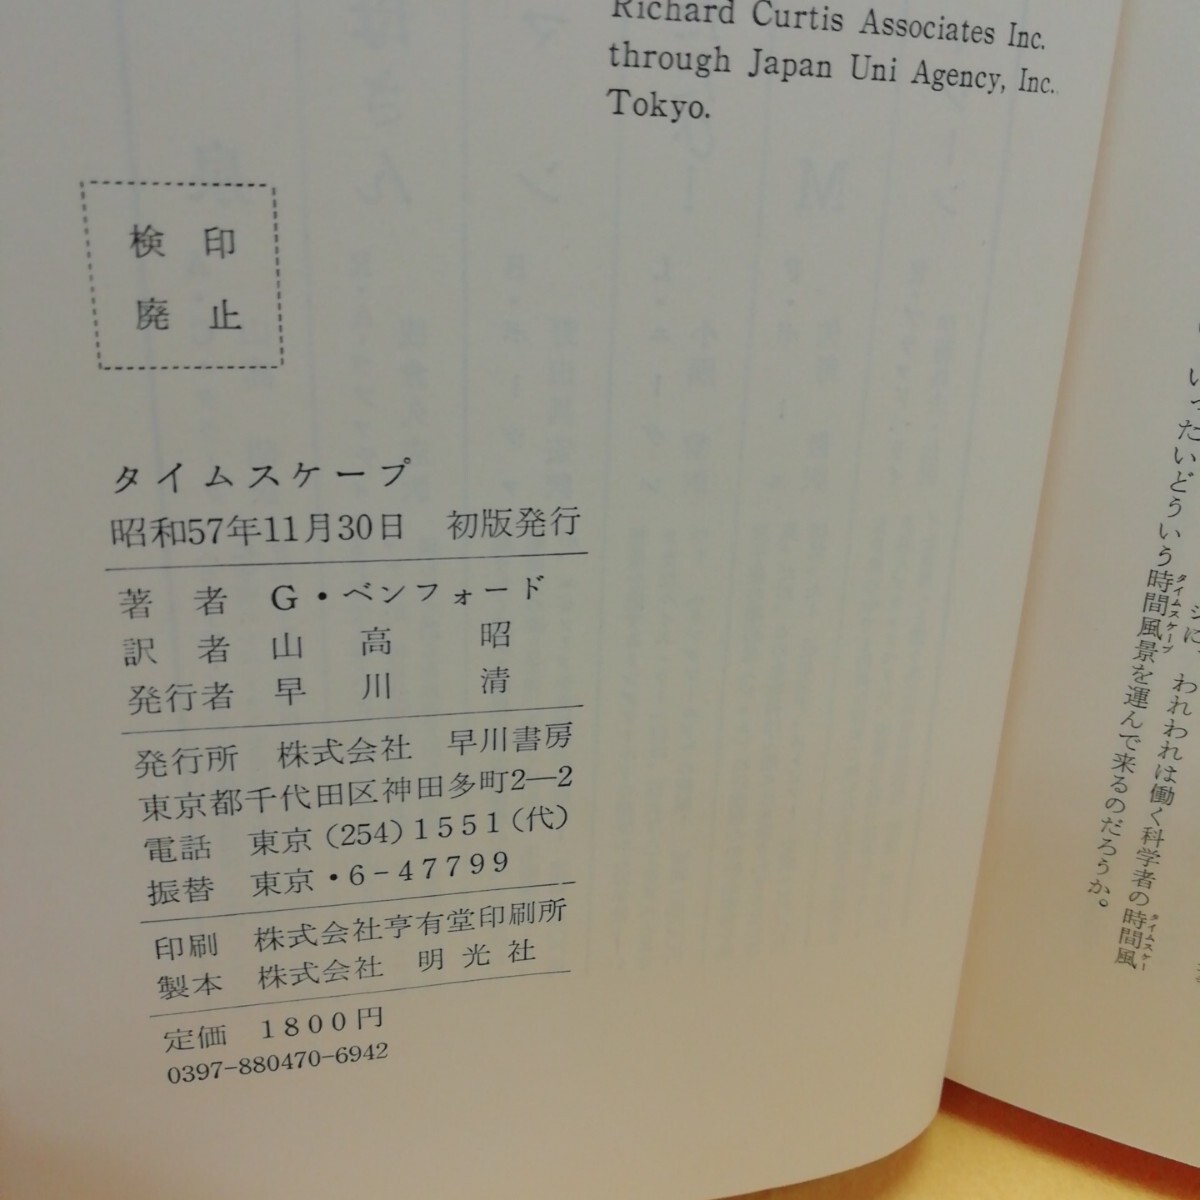 Richard Curtis Associates Inc.
through Japan Uni Agency, Inc.
Tokyo.
検印
廃止
タイムスケープ
昭和57年11月30日 初版発行
著者 G・ベンフォード
訳者 山高昭
発行者 早川清
発行所 株式会社 早川書房
東京都千代田区神田多町2—2
電話 東京 (254) 1551 (代)
振替 東京・6-47799
印刷 株式会社亨有堂印刷所
製本 株式会社 明光社
定価 1800円
0397-880470-6942
に、われわれは働く科学者の時間風
タイムスケー
いったいどういう時間風景を運んで来るのだろうか。
タイムスケープ